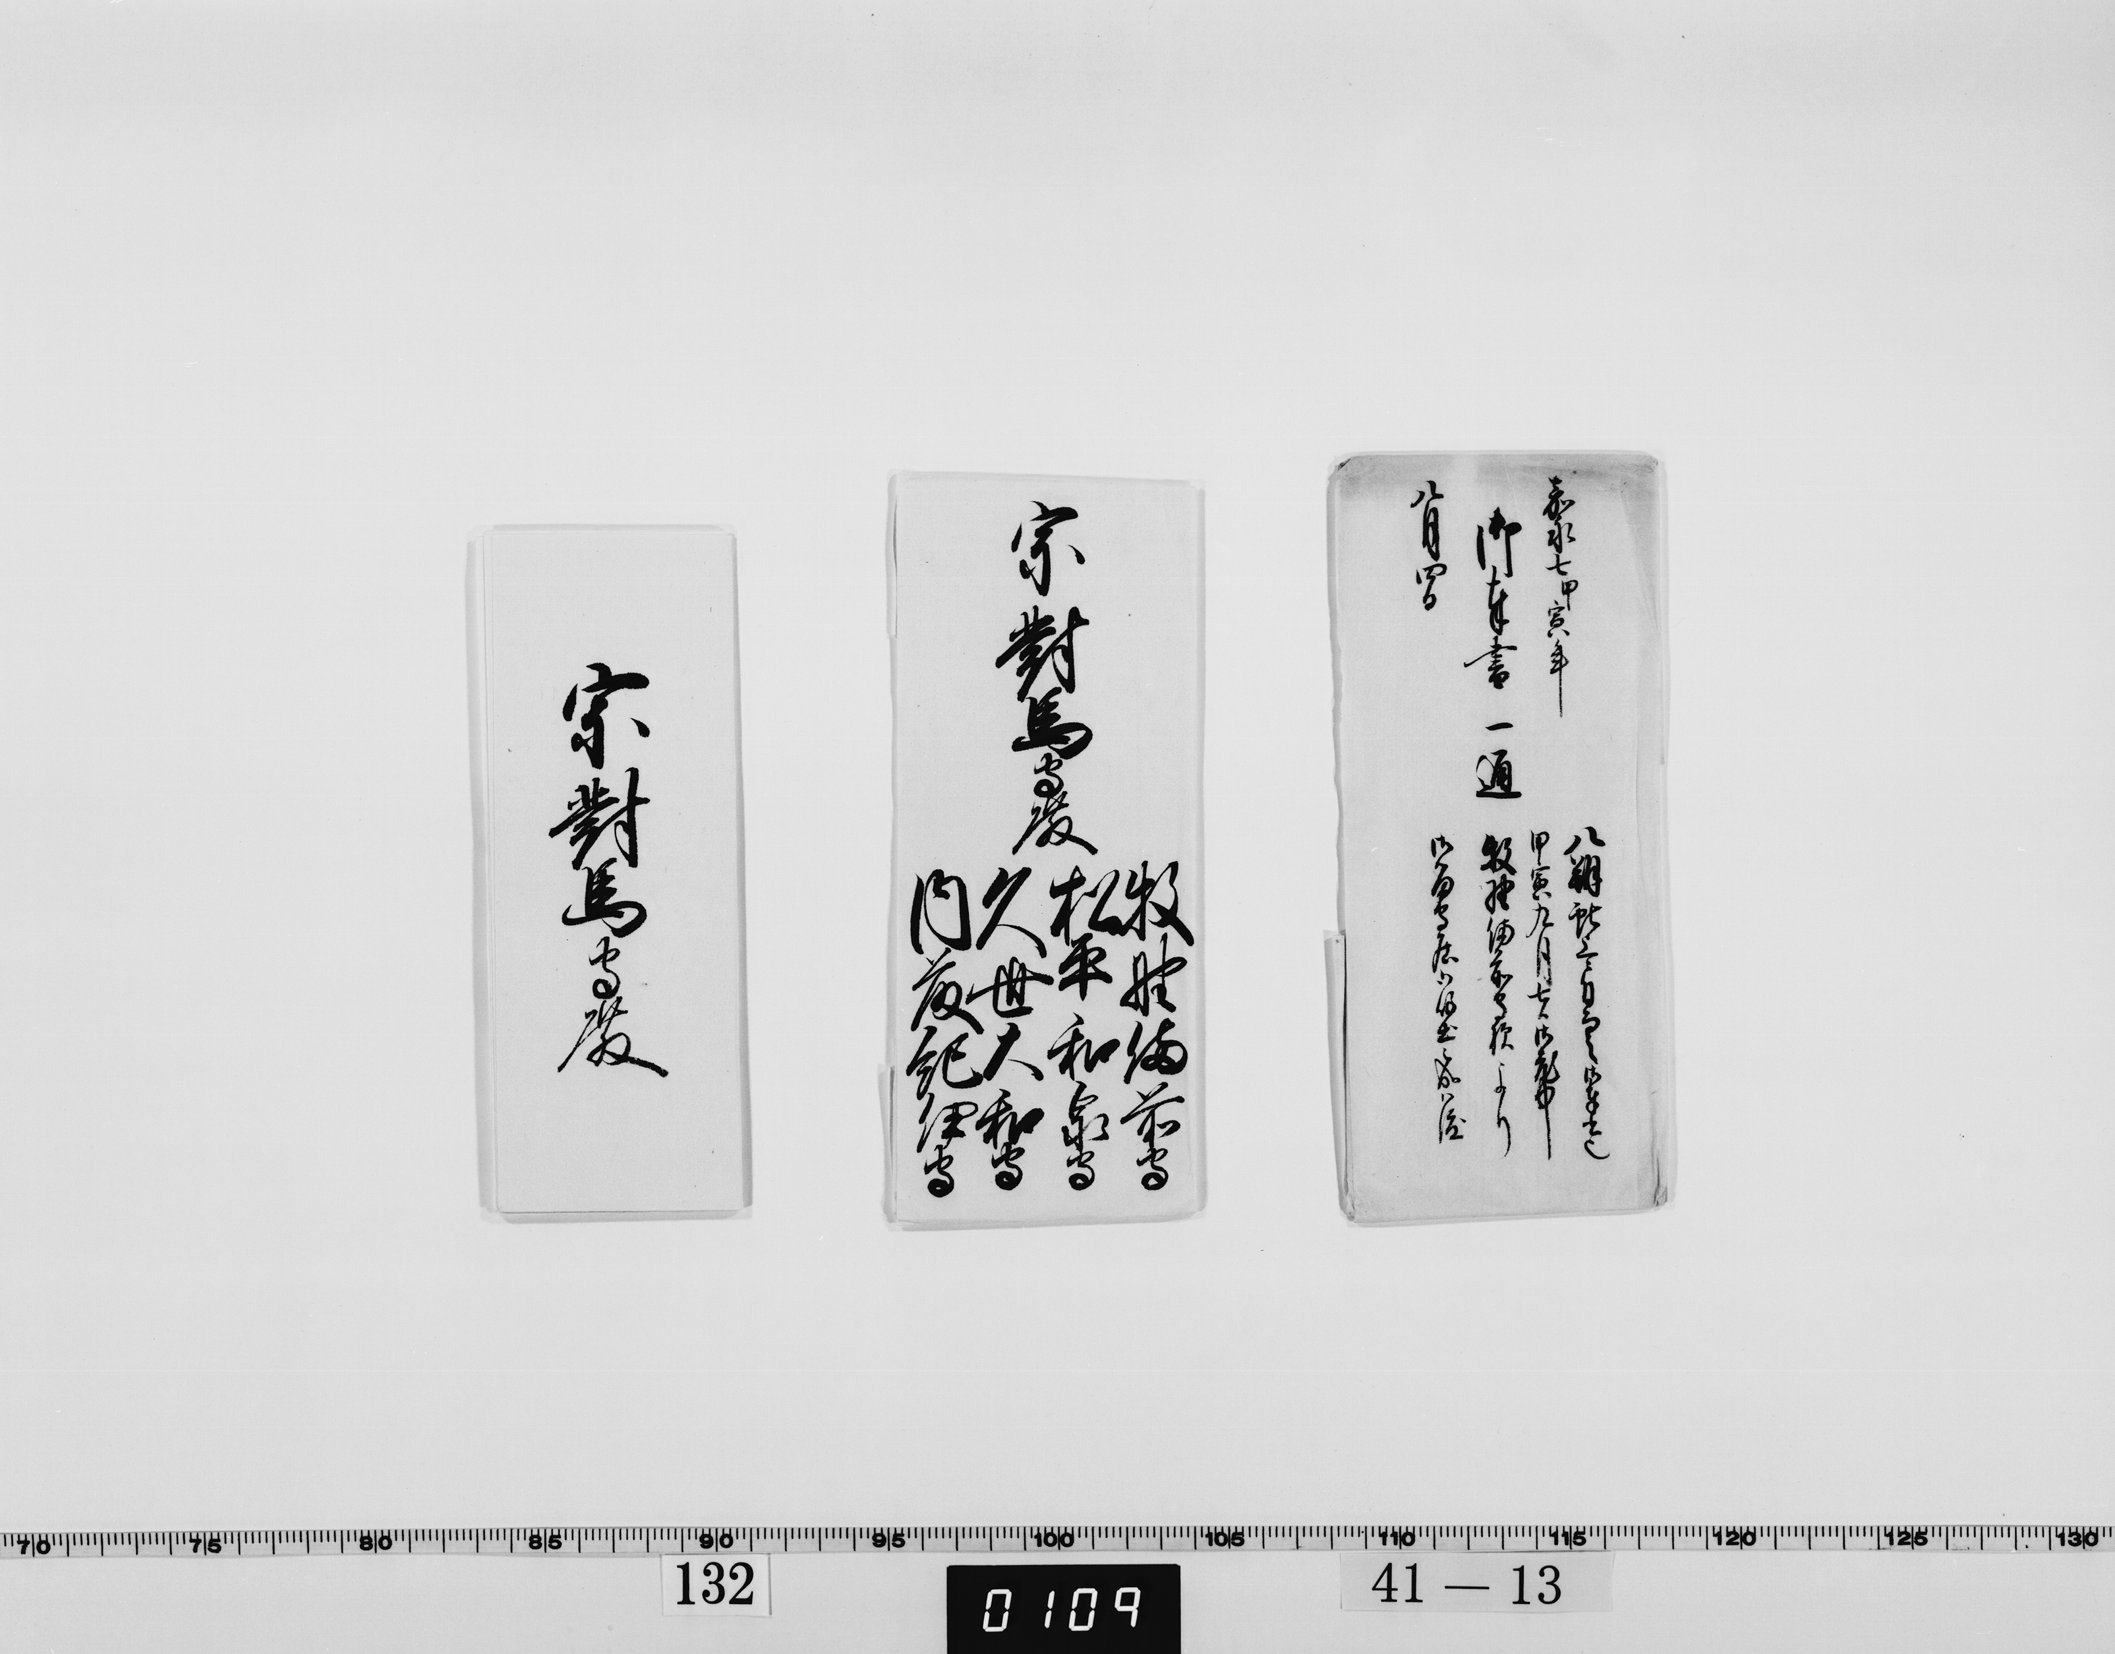 嘉永七甲寅年
御奉書 一通
八月四日
八朔
甲寅九月七日御飛脚
牧野備前守様より
宗對馬守殿
牧野備前守
松平和泉守
久世大和守
内藤紀伊守
宗對馬守殿
70 75 80 85 90 95 100 105 110 115 120 125 130
132
0109
41—13